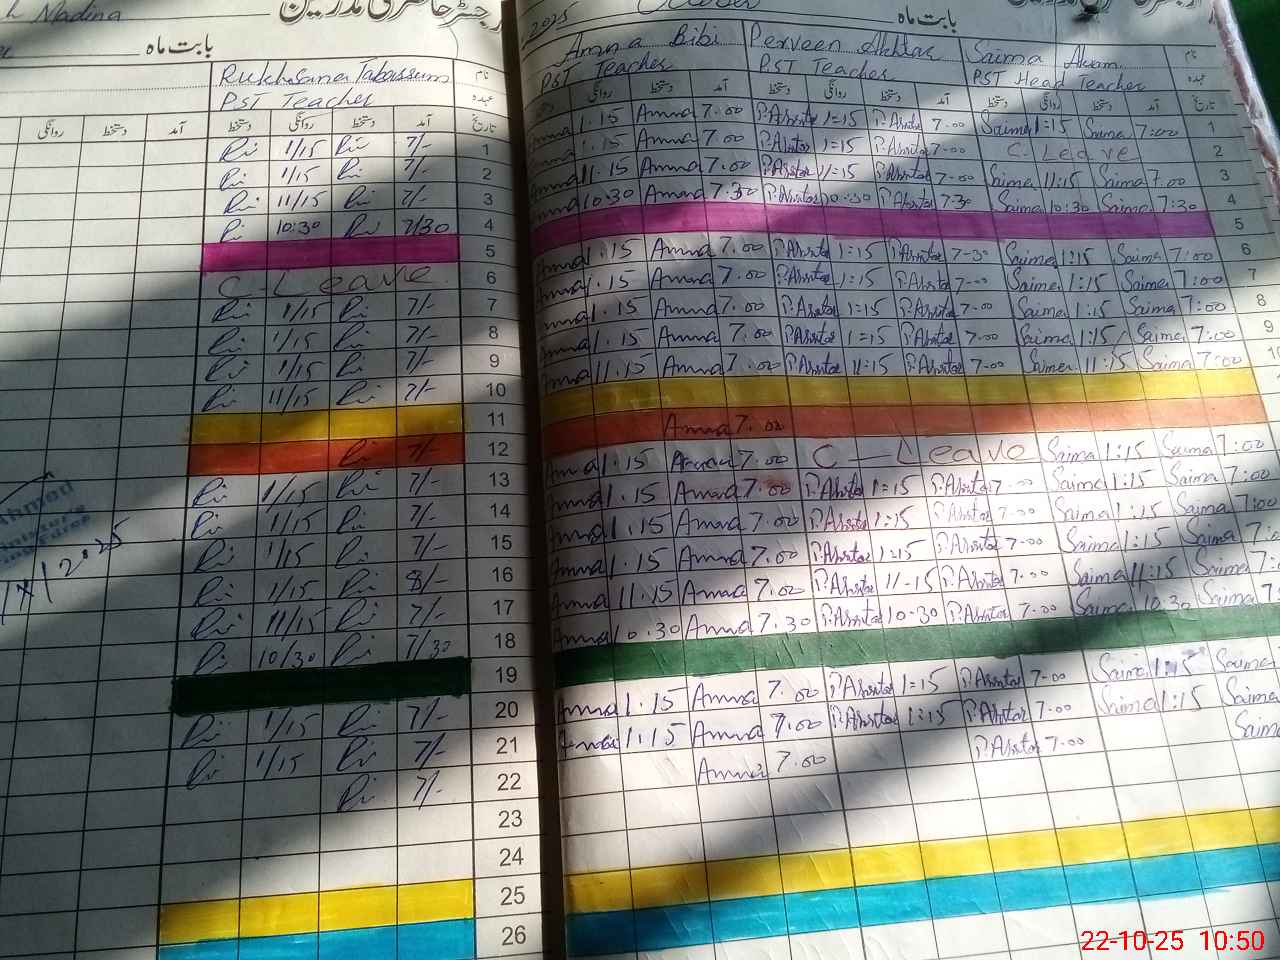 Madina
رجسٹر حاضری مدرسین
بابت ماہ
Rukhsana Tabassum نام
PST Teacher عہدہ
روانگی دستخط آمد دستخط روانگی دستخط آمد تاریخ
1/15 7/- 1
1/15 7/- 2
11/15 7/- 3
10:30 7/30 4
5
C. Leave 6
1/15 7/- 7
1/15 7/- 8
1/15 7/- 9
11/15 7/- 10
11
7/- 12
1/15 7/- 13
1/15 7/- 14
1/15 7/- 15
1/15 8/- 16
11/15 7/- 17
10/30 7/30 18
19
1/15 7/- 20
1/15 7/- 21
7/- 22
23
24
25
26
Ahmed
2025
2025 October بابت ماہ
Amna Bibi Perveen Akhtar Saima Akram نام
PST Teacher PST Teacher PST Head Teacher عہدہ
روانگی دستخط آمد دستخط روانگی دستخط آمد دستخط روانگی دستخط آمد تاریخ
1.15 Amna 7.00 P.Akhtar 1=15 P.Akhtar 7-00 Saima 1:15 Saima 7:00 1
1.15 Amna 7.00 P.Akhtar 1=15 P.Akhtar 7-00 C. Leave 2
11.15 Amna 7.00 P.Akhtar 11=15 P.Akhtar 7-00 Saima 11:15 Saima 7.00 3
Amna 10.30 Amna 7.30 P.Akhtar 10:30 P.Akhtar 7-30 Saima 10:30 Saima 7:30 4
5
Amna 1.15 Amna 7.00 P.Akhtar 1=15 P.Akhtar 7-30 Saima 1:15 Saima 7:00 6
Amna 1.15 Amna 7.00 P.Akhtar 1=15 P.Akhtar 7-00 Saima 1:15 Saima 7:00 7
Amna 1.15 Amna 7.00 P.Akhtar 1=15 P.Akhtar 7-00 Saima 1:15 Saima 7:00 8
Amna 1.15 Amna 7.00 P.Akhtar 1=15 P.Akhtar 7-00 Saima 1:15 Saima 7:00 9
Amna 11.15 Amna 7.00 P.Akhtar 11=15 P.Akhtar 7-00 Saima 11:15 Saima 7:00
Amna 7.00
Amna 1.15 Amna 7.00 C - Leave Saima 1:15 Saima 7:00
Amna 1.15 Amna 7.00 P.Akhtar 1=15 P.Akhtar 7-00 Saima 1:15 Saima 7:00
Amna 1.15 Amna 7.00 P.Akhtar 1=15 P.Akhtar 7-00 Saima 1:15 Saima 7:00
Amna 1.15 Amna 7.00 P.Akhtar 1=15 P.Akhtar 7-00 Saima 1:15 Saima
Amna 11.15 Amna 7.00 P.Akhtar 11-15 P.Akhtar 7.00 Saima 11:15 Saima
Amna 10.30 Amna 7.30 P.Akhtar 10-30 P.Akhtar 7.00 Saima 10:30 Saima
Amna 1.15 Amna 7.00 P.Akhtar 1=15 P.Akhtar 7-00 Saima 1:15 Saima
Amna 1.15 Amna 7.00 P.Akhtar 1:15 P.Akhtar 7.00 Saima 1:15 Saima
Amna 7.00 P.Akhtar 7-00 Saima
22-10-25 10:50